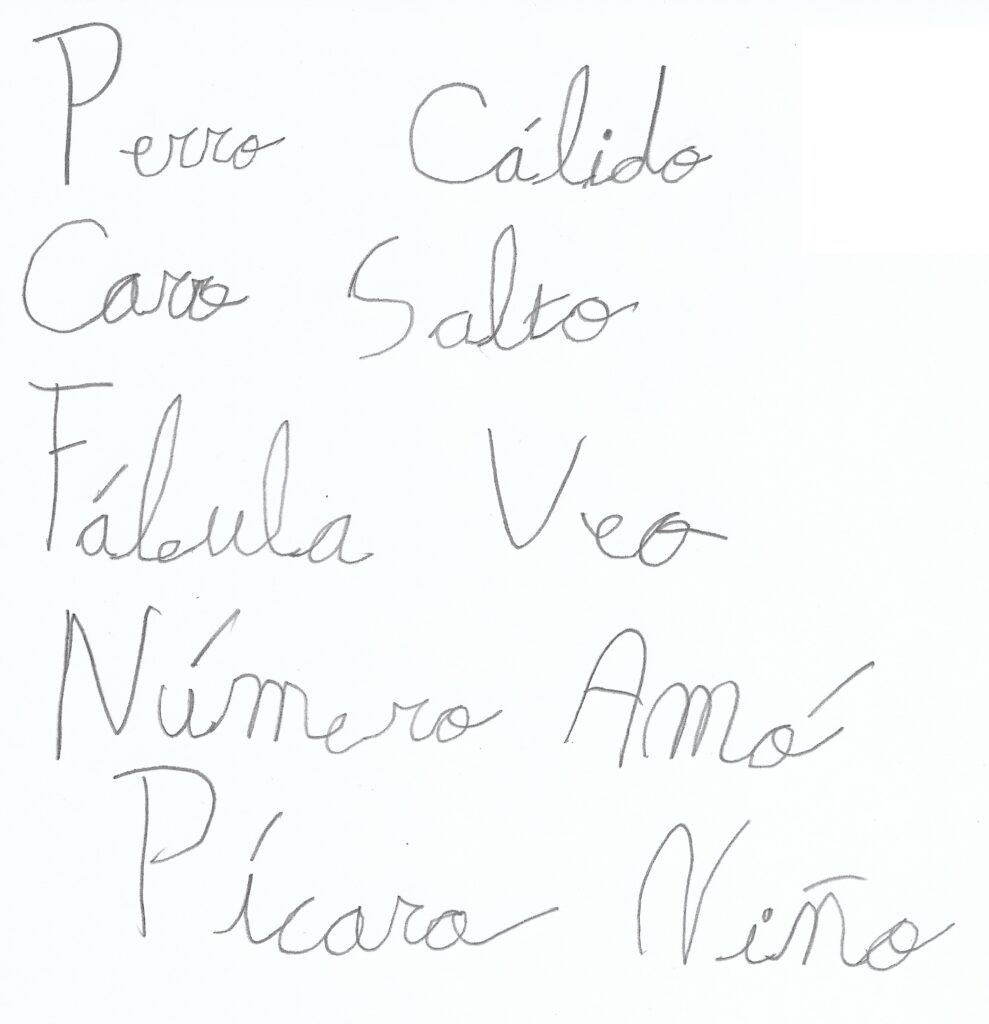 Perro Cálido
Carro Salto
Fábula Veo
Número Amó
Pícaro Niño